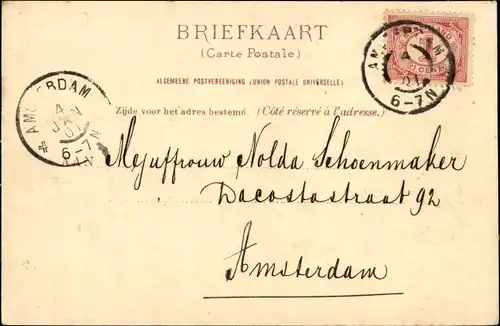 BRIEFKAART
(Carte Postale)
ALGEMEENE POSTVEREENIGING (UNION POSTALE UNIVERSELLE)
Zijde voor het adres bestemd. (Côté réservé à l'adresse.)
AMSTERDAM
4
JAN
01
6-7N
AMSTERDAM
4
01
6-7N
Mejuffrouw Nolda Schoenmaker
Dacostastraat 92
Amsterdam